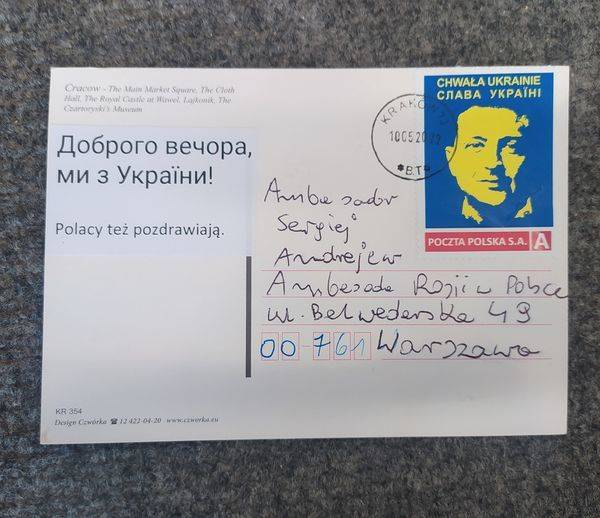 Cracow - The Main Market Square, The Cloth
Hall, The Royal Castle at Wawel, Lajkonik, The
Czartoryski's Museum
Доброго вечора,
ми з України!
Polacy też pozdrawiają.
CHWAŁA UKRAINIE
СЛАВА УКРАЇНІ
POCZTA POLSKA S.A. A
KRAKÓW
*BT*
Ambasador
Sergiej
Andrejew
Ambasada Rosji w Polsce
ul. Belwederska 49
00-761 Warszawa
KR 354
Design Czwórka ☎ 12 422-04-20 www.czworka.eu